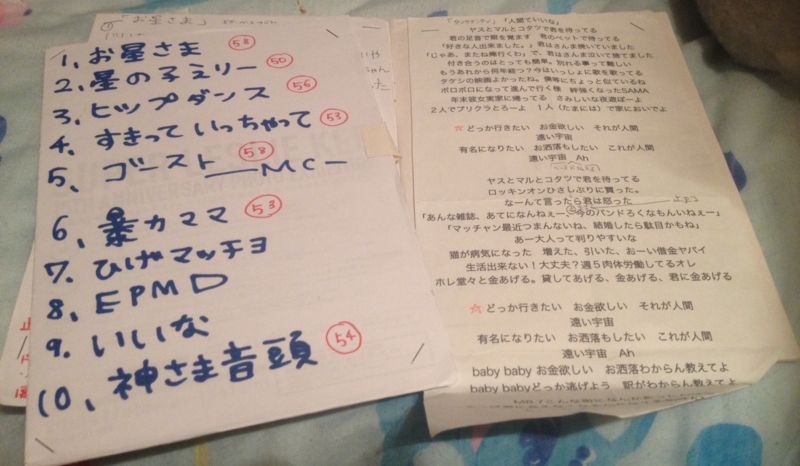 「お星さま」
1、お星さま 58
2、星の子えリー 60
3、ヒップダンス 56
4、すきっていっちゃって 53
5、ゴースト 58 ―MC―
6、暴カママ 53
7、ひげマッチョ
8、EPMD
9、いいな
10、神さま音頭 54
「ロッキンオン」「人間ていいな」
ヤスとマルとコタツで君を待ってる
君の足音で眼を覚ます 君のベットで待ってる
「好きな人出来ました。」君はさんま焼いていました
「じゃあ、またね俺行くわ」で、君はさんま泣いて捨てました
付き合うのはとっても簡単。別れる事って難しい
もうあれから何年経つ？今はいっしょに歌を歌ってる
タケシの映画よかったね。僕等にちょっと似ているね
ボロボロになって進んで行く様 絆強くなったSAMA
年末彼女実家に帰ってる さみしいな夜遊ぼーよ
2人でプリクラとろーよ 1人(たまには)で家においでよ
☆どっか行きたい お金欲しい それが人間
遠い宇宙
有名になりたい お洒落もしたい これが人間
遠い宇宙 Ah
ヤスとマルとコタツで君を待ってる
ロッキンオンひさしぶりに買った。
なーんて言ったら君は怒った
「あんな雑誌、あてになんねぇー、今のバンドろくなもんいねぇー」
「マッチャン最近つまんないね、結婚したら駄目かもね」
あー大人って判りやすいな
猫が病気になった 増えた、引いた、おーい借金ヤバイ
生活出来ない！大丈夫？週5肉体労働してるオレ
ホレ堂々と金あげる。貸してあげる、金あげる、君に金あげる
☆どっか行きたい お金欲しい それが人間
遠い宇宙
有名になりたい お洒落もしたい これが人間
遠い宇宙 Ah
baby baby お金欲しい お洒落わからん教えてよ
baby babyどっか逃げよう 訳がわからん教えてよ